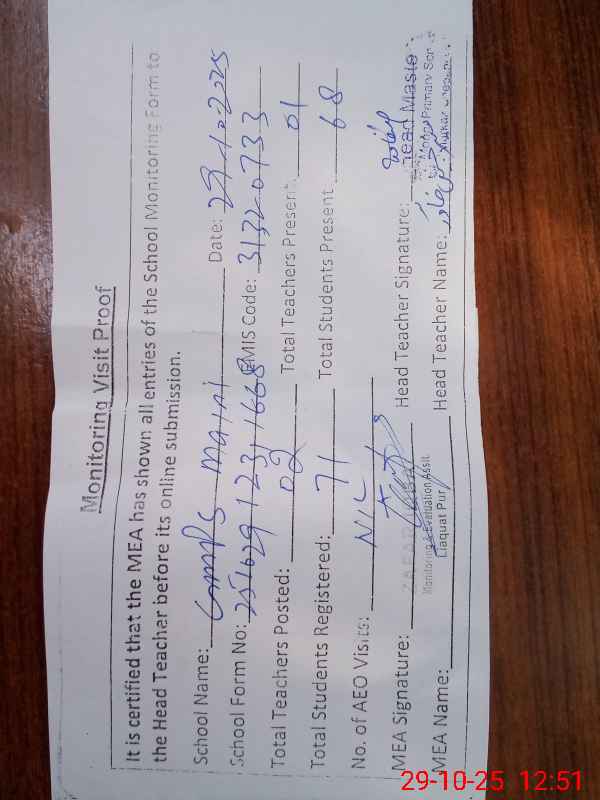 Monitoring Visit Proof
It is certified that the MEA has shown all entries of the School Monitoring Form to
the Head Teacher before its online submission.
School Name: GMPS Date: 29-10-2025
School Form No: EMIS Code: 31320733
Total Teachers Posted: 02 Total Teachers Present: 01
Total Students Registered: 71 Total Students Present 68
No. of AEO Visits: NIL
MEA Signature: Head Teacher Signature: Head Master
Monitoring & Evaluation Assit
MEA Name: Liaquat Pur Head Teacher Name:
29-10-25 12:51